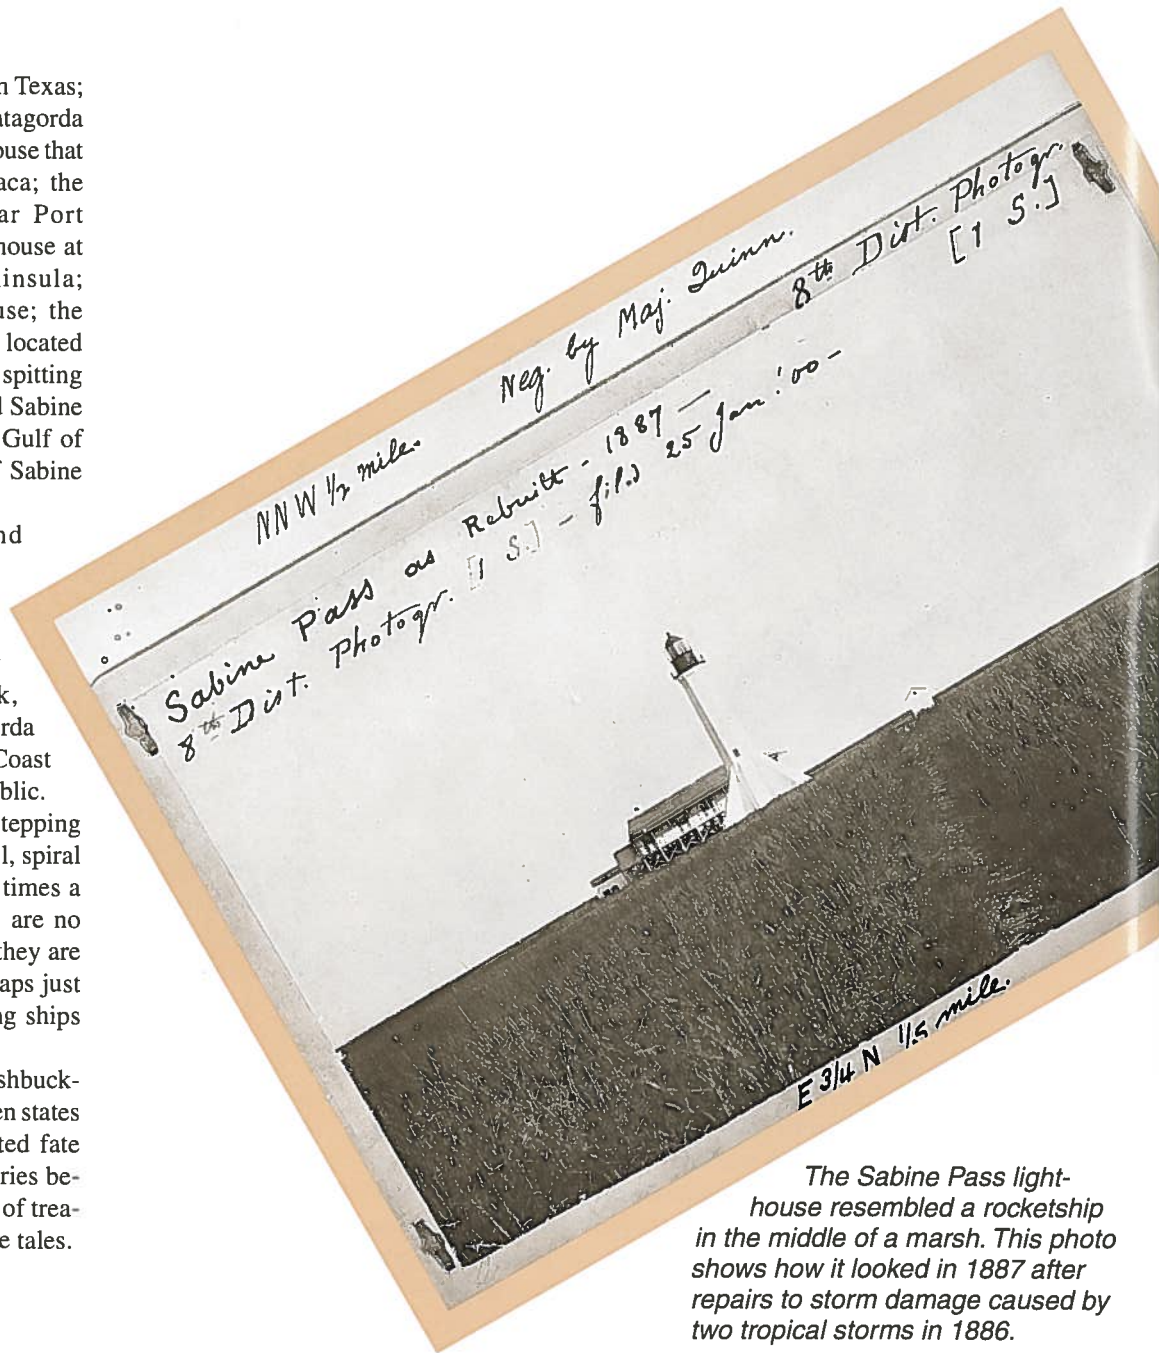 n Texas;
atagorda
ouse that
aca; the
ar Port
house at
insula;
use; the
located
spitting
d Sabine
Gulf of
f Sabine
nd
k,
rda
Coast
blic.
tepping
l, spiral
times a
are no
they are
aps just
ng ships
shbuck-
en states
ted fate
ries be-
of trea-
e tales.
NNW 1/2 mile. Neg. by Maj. Quinn.
8th Dist. Photogr.
[1 S.]
Sabine Pass as Rebuilt - 1887 —
8th Dist. Photogr. [1 S.] - filed 25 Jan. '00 -
E 3/4 N 1/5 mile.
The Sabine Pass light-
house resembled a rocketship
in the middle of a marsh. This photo
shows how it looked in 1887 after
repairs to storm damage caused by
two tropical storms in 1886.